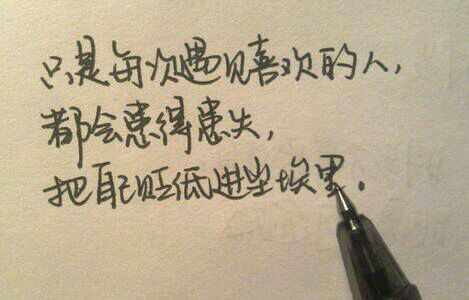 只是每次遇见喜欢的人，
都会患得患失，
把自己贬低进尘埃里。